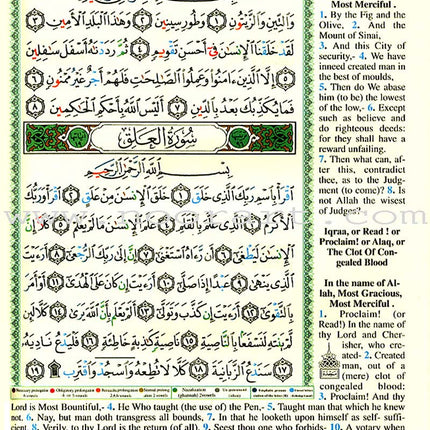 وَالتِّينِ وَالزَّيْتُونِ ١ وَطُورِ سِينِينَ ٢ وَهَٰذَا الْبَلَدِ الْأَمِينِ ٣
لَقَدْ خَلَقْنَا الْإِنسَٰنَ فِي أَحْسَنِ تَقْوِيمٍ ٤ ثُمَّ رَدَدْنَٰهُ أَسْفَلَ سَٰفِلِينَ
٥ إِلَّا الَّذِينَ ءَامَنُوا وَعَمِلُوا الصَّٰلِحَٰتِ فَلَهُمْ أَجْرٌ غَيْرُ مَمْنُونٍ ٦
فَمَا يُكَذِّبُكَ بَعْدُ بِالدِّينِ ٧ أَلَيْسَ اللَّهُ بِأَحْكَمِ الْحَٰكِمِينَ ٨
سُورَةُ الْعَلَقِ
بِسْمِ اللَّهِ الرَّحْمَٰنِ الرَّحِيمِ
اقْرَأْ بِاسْمِ رَبِّكَ الَّذِي خَلَقَ ١ خَلَقَ الْإِنسَٰنَ مِنْ عَلَقٍ ٢ اقْرَأْ وَرَبُّكَ
الْأَكْرَمُ ٣ الَّذِي عَلَّمَ بِالْقَلَمِ ٤ عَلَّمَ الْإِنسَٰنَ مَا لَمْ يَعْلَمْ ٥ كَلَّا إِنَّ
الْإِنسَٰنَ لَيَطْغَىٰ ٦ أَن رَّءَاهُ اسْتَغْنَىٰ ٧ إِنَّ إِلَىٰ رَبِّكَ الرُّجْعَىٰ ٨ أَرَءَيْتَ
الَّذِي يَنْهَىٰ ٩ عَبْدًا إِذَا صَلَّىٰ ١٠ أَرَءَيْتَ إِن كَانَ عَلَى الْهُدَىٰ ١١ أَوْ أَمَرَ
بِالتَّقْوَىٰ ١٢ أَرَءَيْتَ إِن كَذَّبَ وَتَوَلَّىٰ ١٣ أَلَمْ يَعْلَم بِأَنَّ اللَّهَ يَرَىٰ ١٤ كَلَّا لَئِن
لَّمْ يَنتَهِ لَنَسْفَعًا بِالنَّاصِيَةِ ١٥ نَاصِيَةٍ كَٰذِبَةٍ خَاطِئَةٍ ١٦ فَلْيَدْعُ نَادِيَهُ
١٧ سَنَدْعُ الزَّبَانِيَةَ ١٨ كَلَّا لَا تُطِعْهُ وَاسْجُدْ وَاقْتَرِب ١٩
Most Merciful .
1. By the Fig and the
Olive, 2. And the
Mount of Sinai,
3. And this City of
security,- 4. We have
inneed created man in
the best of moulds,
5. Then do We abase
him (to be) the lowest
of the low,- 6. Except
such as believe and
do righteous deeds:
for they shall have a
reward unfailing.
7. Then what can, af-
ter this, contradict
thee, as to the Judg-
ment (to come)? 8. Is
not Allah the wisest
of Judges?
Iqraa, or Read ! or
Proclaim! or Alaq, or
The Clot Of Con-
gealed Blood
In the name of Al-
lah, Most Gracious,
Most Merciful .
1. Proclaim! (or
Read!) In the name of
thy Lord and Cher-
isher, who cre-
ated- 2. Created
man, out of a
(mere) clot of
congealed blood:
3. Proclaim! And thy
Lord is Most Bountiful,- 4. He Who taught (the use of) the Pen,- 5. Taught man that which he knew
not. 6. Nay, but man doth transgress all bounds, 7. In that he looketh upon himself as self- suffi-
cient. 8. Verily, to thy Lord is the return (of all). 9. Seest thou one who forbids- 10. A votary when